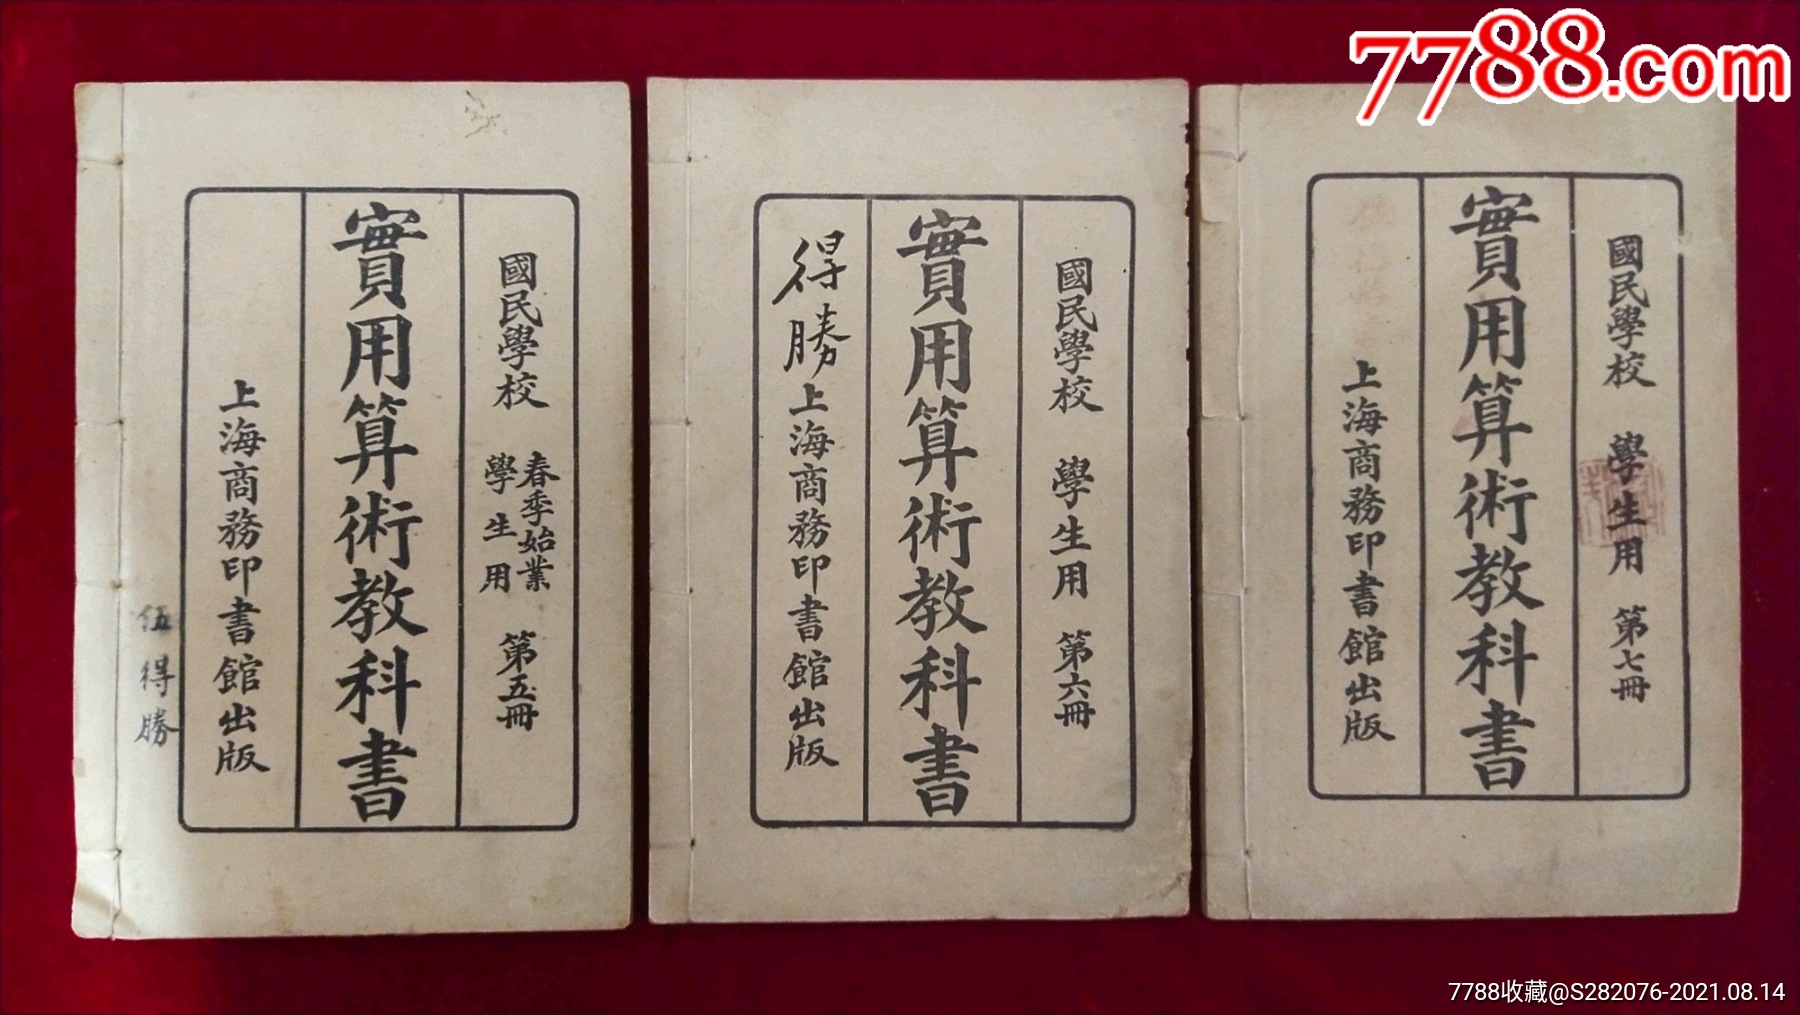 7788.com
國民學校 春季始業 學生用 第五冊
實用算術教科書
上海商務印書館出版
伍得勝
國民學校 學生用 第六冊
實用算術教科書
得勝
上海商務印書館出版
國民學校 學生用 第七冊
實用算術教科書
上海商務印書館出版
7788收藏@S282076-2021.08.14